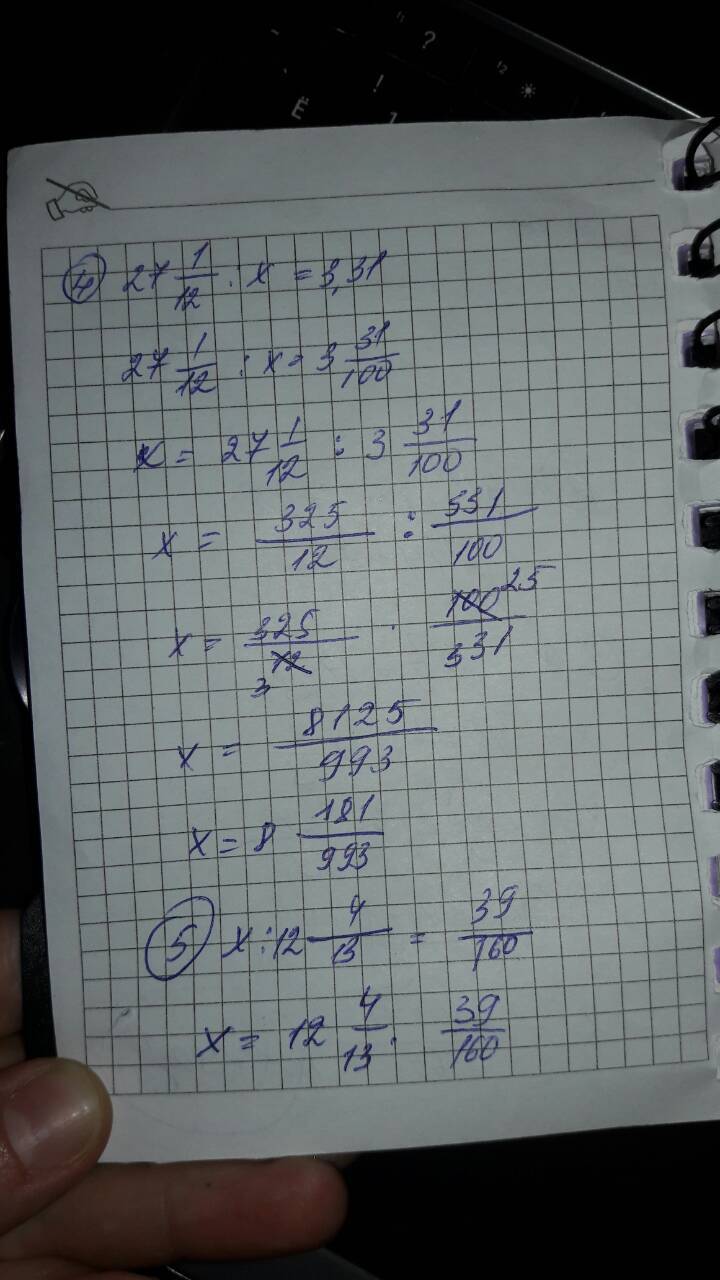 ? 12 ☀
! Ё 1
④ 27 1/12 : x = 3,31
27 1/12 : x = 3 31/100
x = 27 1/12 : 3 31/100
x = 325/12 : 331/100
x = 325/12 3 · 100 25/331
x = 8125/993
x = 8 181/993
⑤ x : 12 4/13 = 39/160
x = 12 4/13 · 39/160